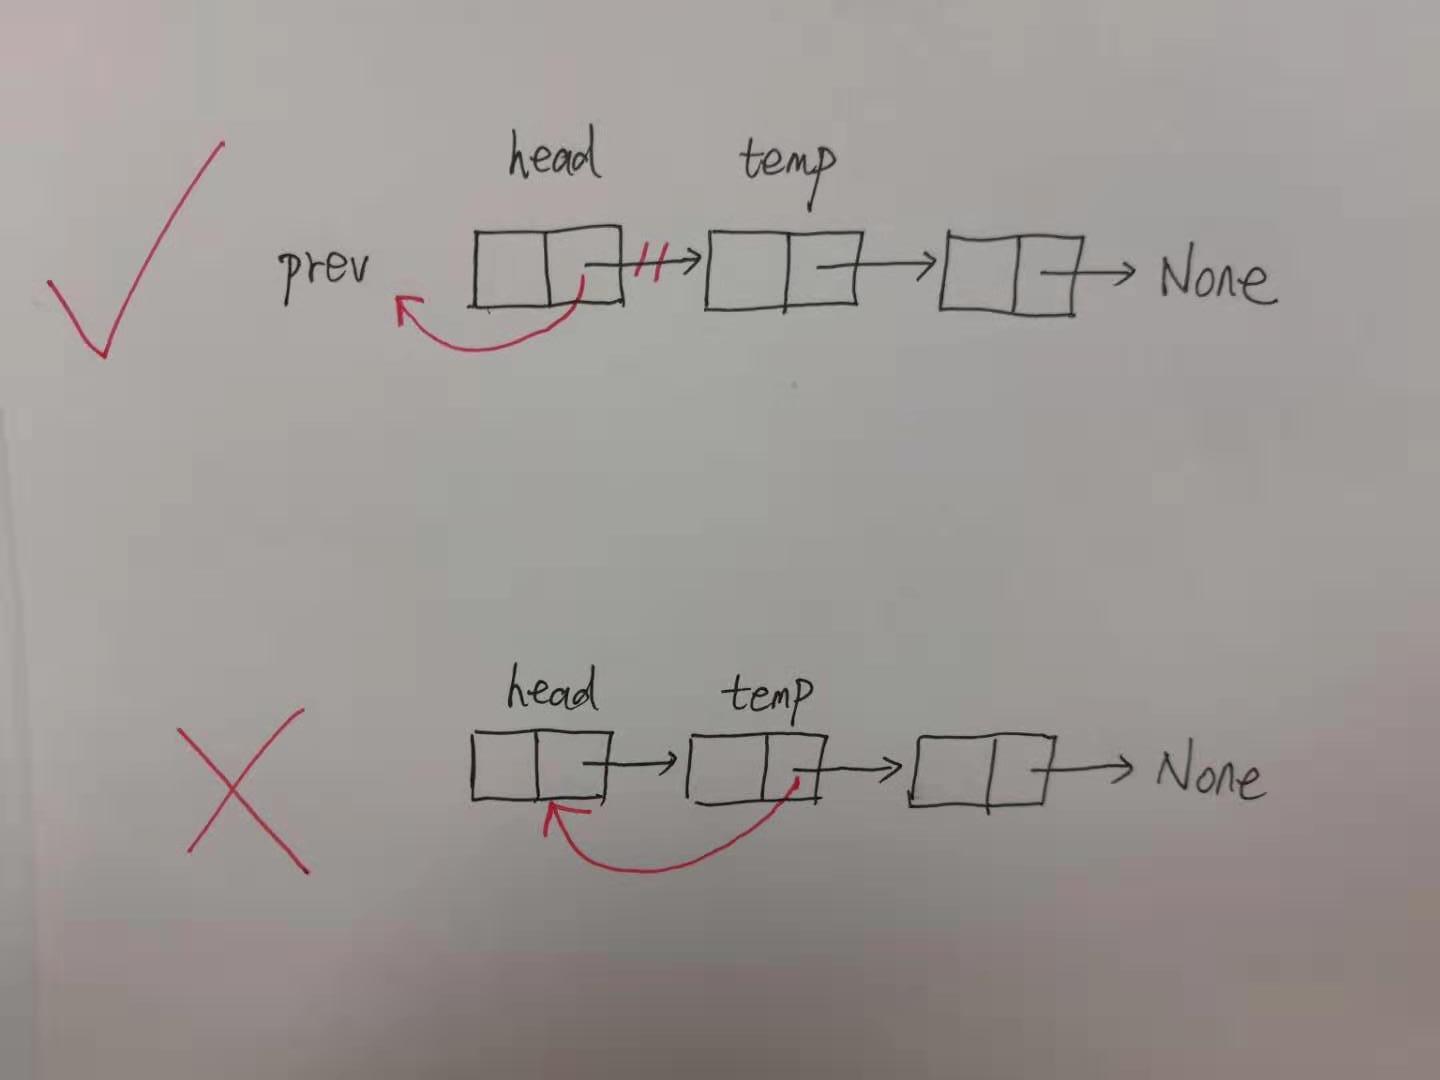 head temp
prev None
head temp
None